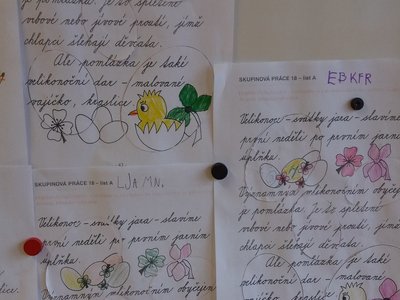 je pomlázka. Je to spletené
vrbové nebo jívové proutí, jímž
chlapci šlehají děvčata.
Ale pomlázka je také
velikonoční dar - malované
vajíčko, kraslice.
SKUPINOVÁ PRÁCE 18 – list A LJA MN.
Velikonoce - svátky jara - slavíme
první neděli po prvním jarním
úplňku.
Významným velikonočním obyčejem
SKUPINOVÁ PRÁCE 18 – list A EBKFR
Velikonoce - svátky jara - slavíme
první neděli po prvním jarním
úplňku.
Významným velikonočním obyčejem
je pomlázka. Je to spletené
vrbové nebo jívové proutí, jímž
chlapci šlehají děvčata.
Ale pomlázka je také
velikonoční dar - malované
vajíčko, kraslice.